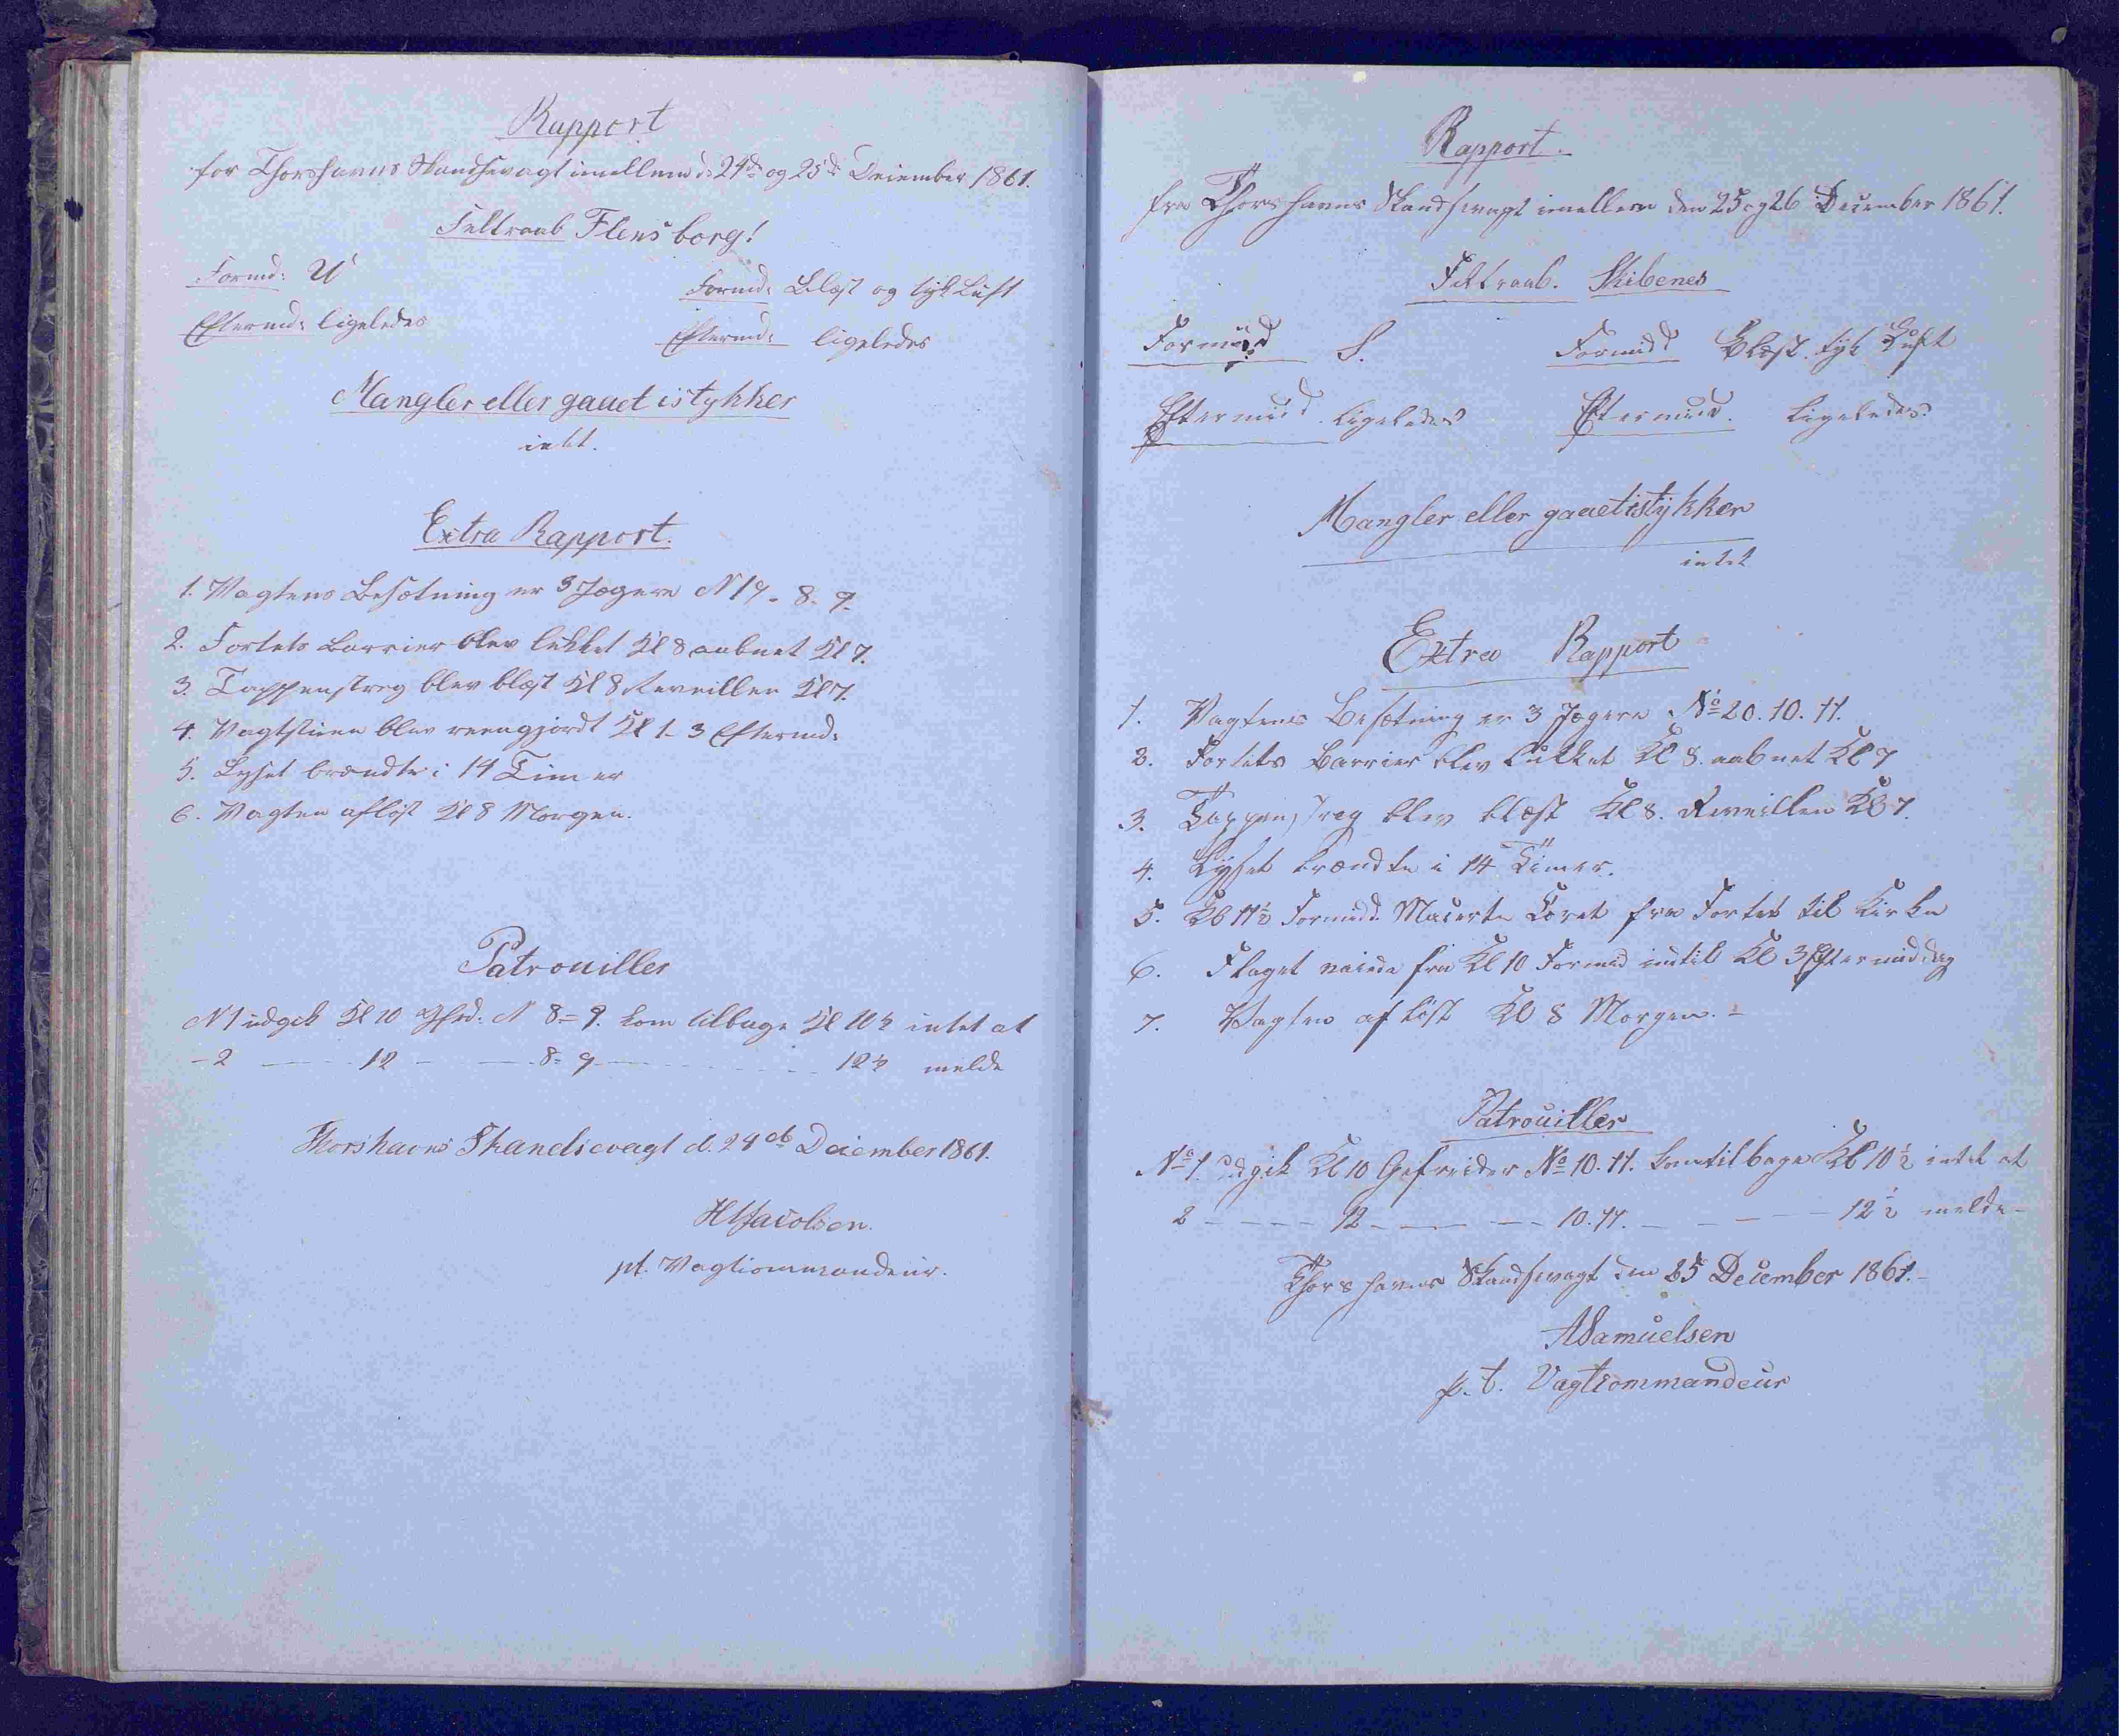 Rapport
for Thorshavns Skandsevagt imellem d: 24de og 25de Desember 1861.
Feltraab Flensborg!
Formd: U
Formd: Blæst og tyk Luft
Eftermd: ligeledes
Eftermd: ligeledes
Mangler eller gaaet istykker
intet.
Extra Rapport.
1. Vagtens Besætning er 3 Jægere N 17 - 8 - 9.
2. Fortets Barrier blev lukket Kl 8 aabnet Kl 7.
3. Tappenstreg blev blæst Kl 8 Reveillen Kl 7.
4. Vagtstuen blev reengjordt Kl 1 - 3 Eftermd:
5. Lyset brændte i 14 Timer
6. Vagten afløst Kl 8 Morgen.
Patrouiller
N 1 udgik Kl 10 Gfrd: N 8 = 9. kom tilbage Kl 10½ intet at
- 2 - 12 - 8 = 9 - 12½ melde
Thorshavns Skandsevagt d. 24de December 1861.
HJacobsen.
pt. Vagtcommandeur.
Rapport.
fra Thorshavns Skandsevagt imellem den 25 og 26 December 1861.
Feltraab. Skibenes
Formidd S.
Formidd Blæst. tyk Luft
Eftermidd. ligeledes
Eftermidd. Ligeledes.
Mangler eller gaaet istykker
intet
Extra Rapport
1. Vagtens Besætning er 3 Jægere No 20. 10. 11.
2. Fortets Barrier blev lukket Kl 8. aabnet Kl 7
3. Tappenstreg blev blæst Kl 8. Reveillen Kl 7.
4. Lyset brændte i 14 Timer.
5. Kl 11½ Formidd. Macerte Coret fra Fortet til Kirke
6. Flaget vaiede fra Kl 10 Formid indtil Kl 3 Eftermiddag
7. Vagten afløst Kl 8 Morgen. -
Patrouiller
No 1. Udgik Kl 10 Gefreider No 10. 11. kom tilbage Kl 10½ intet at
2 - 12 - 10. 11. - 12½ melde -
Thorshavns Skandsevagt den 25 December 1861. -
ASamuelsen
p. t. Vagtkommandeur